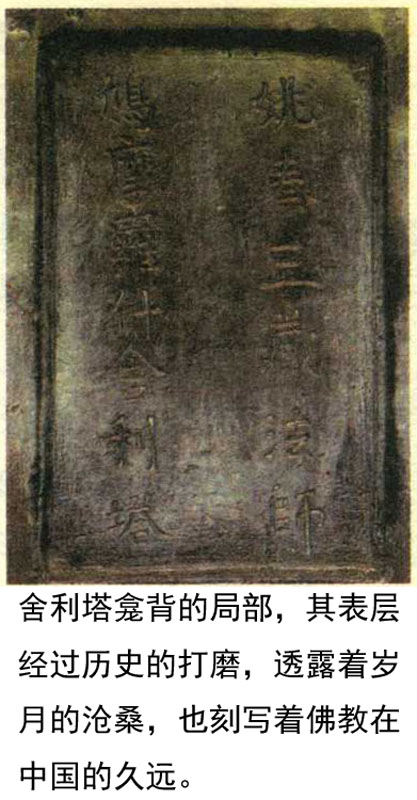 姚秦三藏法師
鳩摩羅什舍利塔
舍利塔龛背的局部，其表层
经过历史的打磨，透露着岁
月的沧桑，也刻写着佛教在
中国的久远。